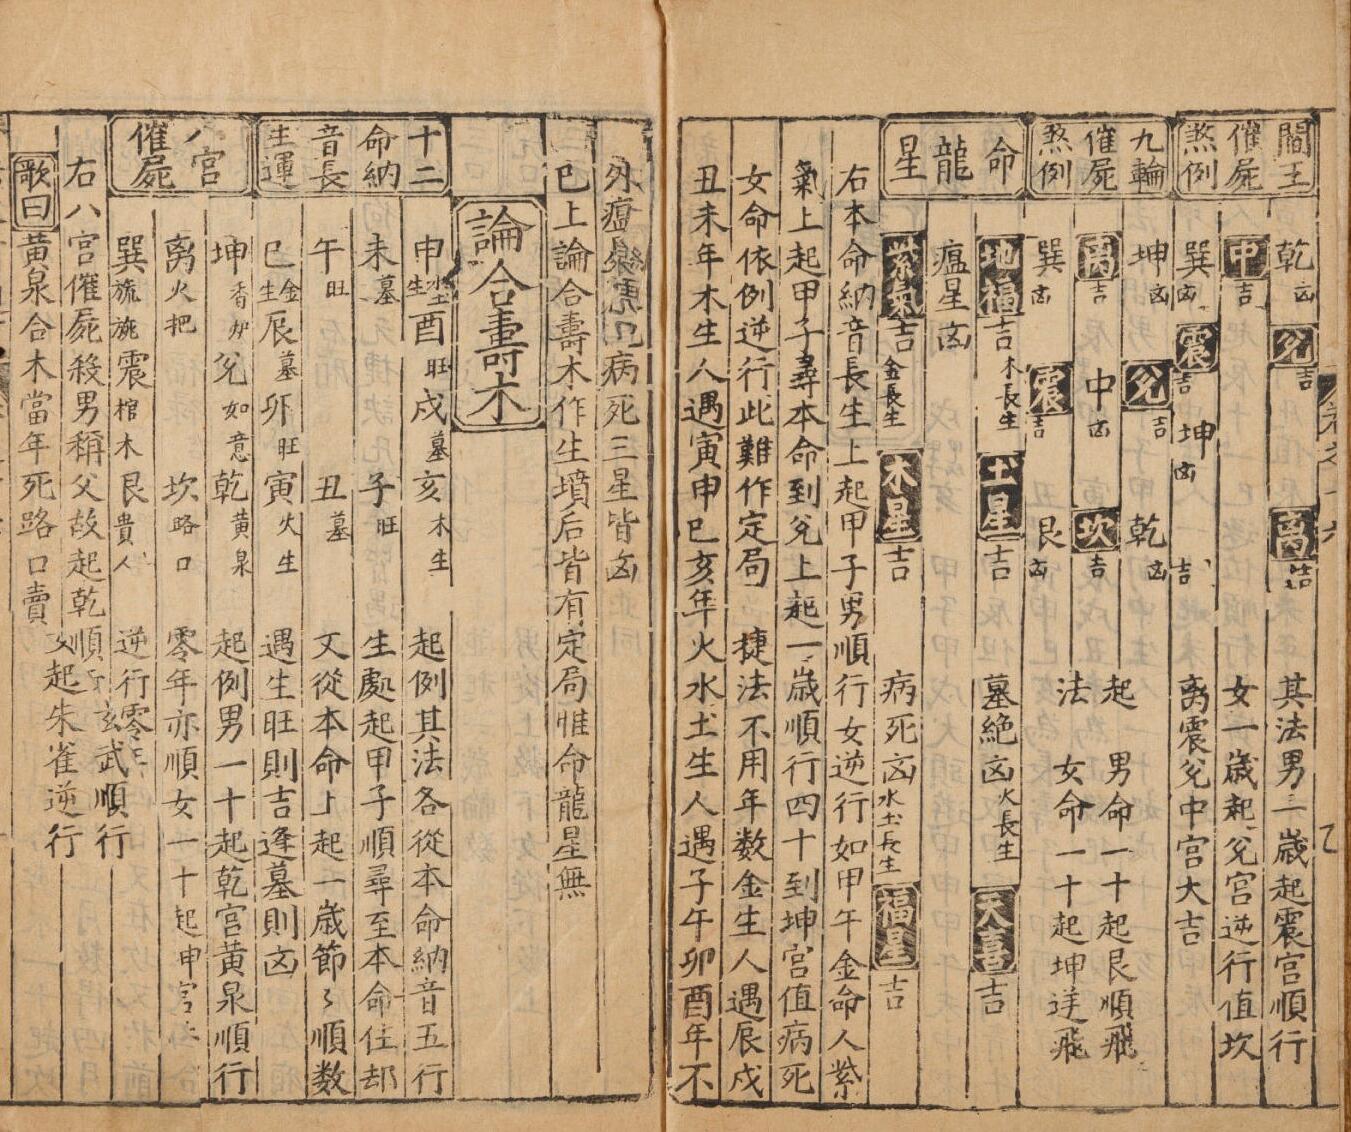 閻王催屍煞例
乾凶 兌吉 离吉 其法男一歲起震宮順行
中吉 女一歲起兌宮逆行值坎
巽凶 震吉 坤凶 吉 离震兌中宮大吉
九輪催屍煞例
坤凶 兌吉 乾凶
离吉 中凶 坎吉 起 男命一十起艮順飛
巽凶 震吉 艮凶 法 女命一十起坤逆飛
命龍星
地福吉 木長生 土星吉 墓絕凶 火長生 天喜吉
瘟星凶
紫氣吉 金長生 木星吉 病死凶 水土長生 福星吉
右本命納音長生上起甲子男順行女逆行如甲午金命人紫
氣上起甲子尋本命到兌上起一歲順行四十到坤宮值病死
女命依例逆行此難作定局 捷法不用年数金生人遇辰戌
丑未年木生人遇寅申巳亥年火水土生人遇子午卯酉年不
病死三星皆凶
巳上論合壽木作生墳后皆有定局惟命龍星無
論合壽木
十二命納音長生運
申 生 酉旺 戌墓 亥木生 起例其法各從本命納音五行
未墓 子旺 生處起甲子順尋至本命住却
午旺 丑墓 又從本命上起一歲節々順数
巳金生 辰墓 卯旺 寅火生 遇生旺則吉逢墓則凶
八宮催屍
坤香炉 兌如意 乾黃泉 起例男一十起乾宮黃泉順行
离火把 坎路口 零年亦順女一十起申宮
巽旒旎 震棺木 艮貴人 逆行零年
右八宮催屍殺男稱父故起乾順行玄武順行
又起朱雀逆行
歌曰黃泉合木當年死路口賣